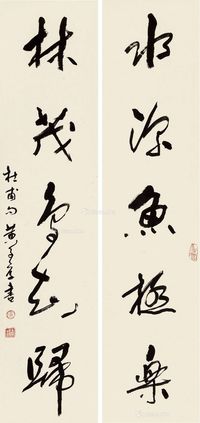 水深魚極樂
林茂鳥知歸
杜甫句 黄書